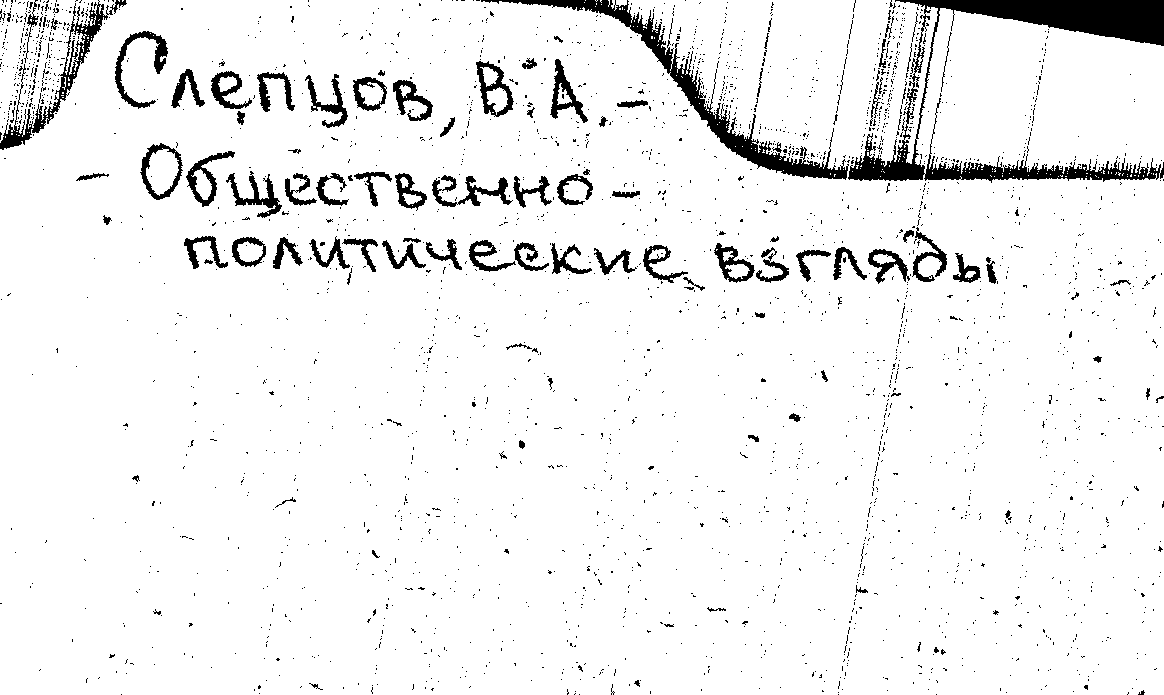 Слепцов, В. А. –
– Общественно –
политические взгляды